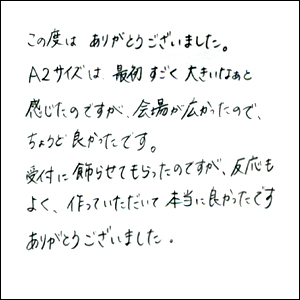 この度は ありがとうございました。
A2サイズは 最初 すごく 大きいなぁと
感じたのですが、会場が広かったので、
ちょうど 良かったです。
受付に 飾らせてもらったのですが、反応も
よく、作っていただいて 本当に良かったです
ありがとうございました。